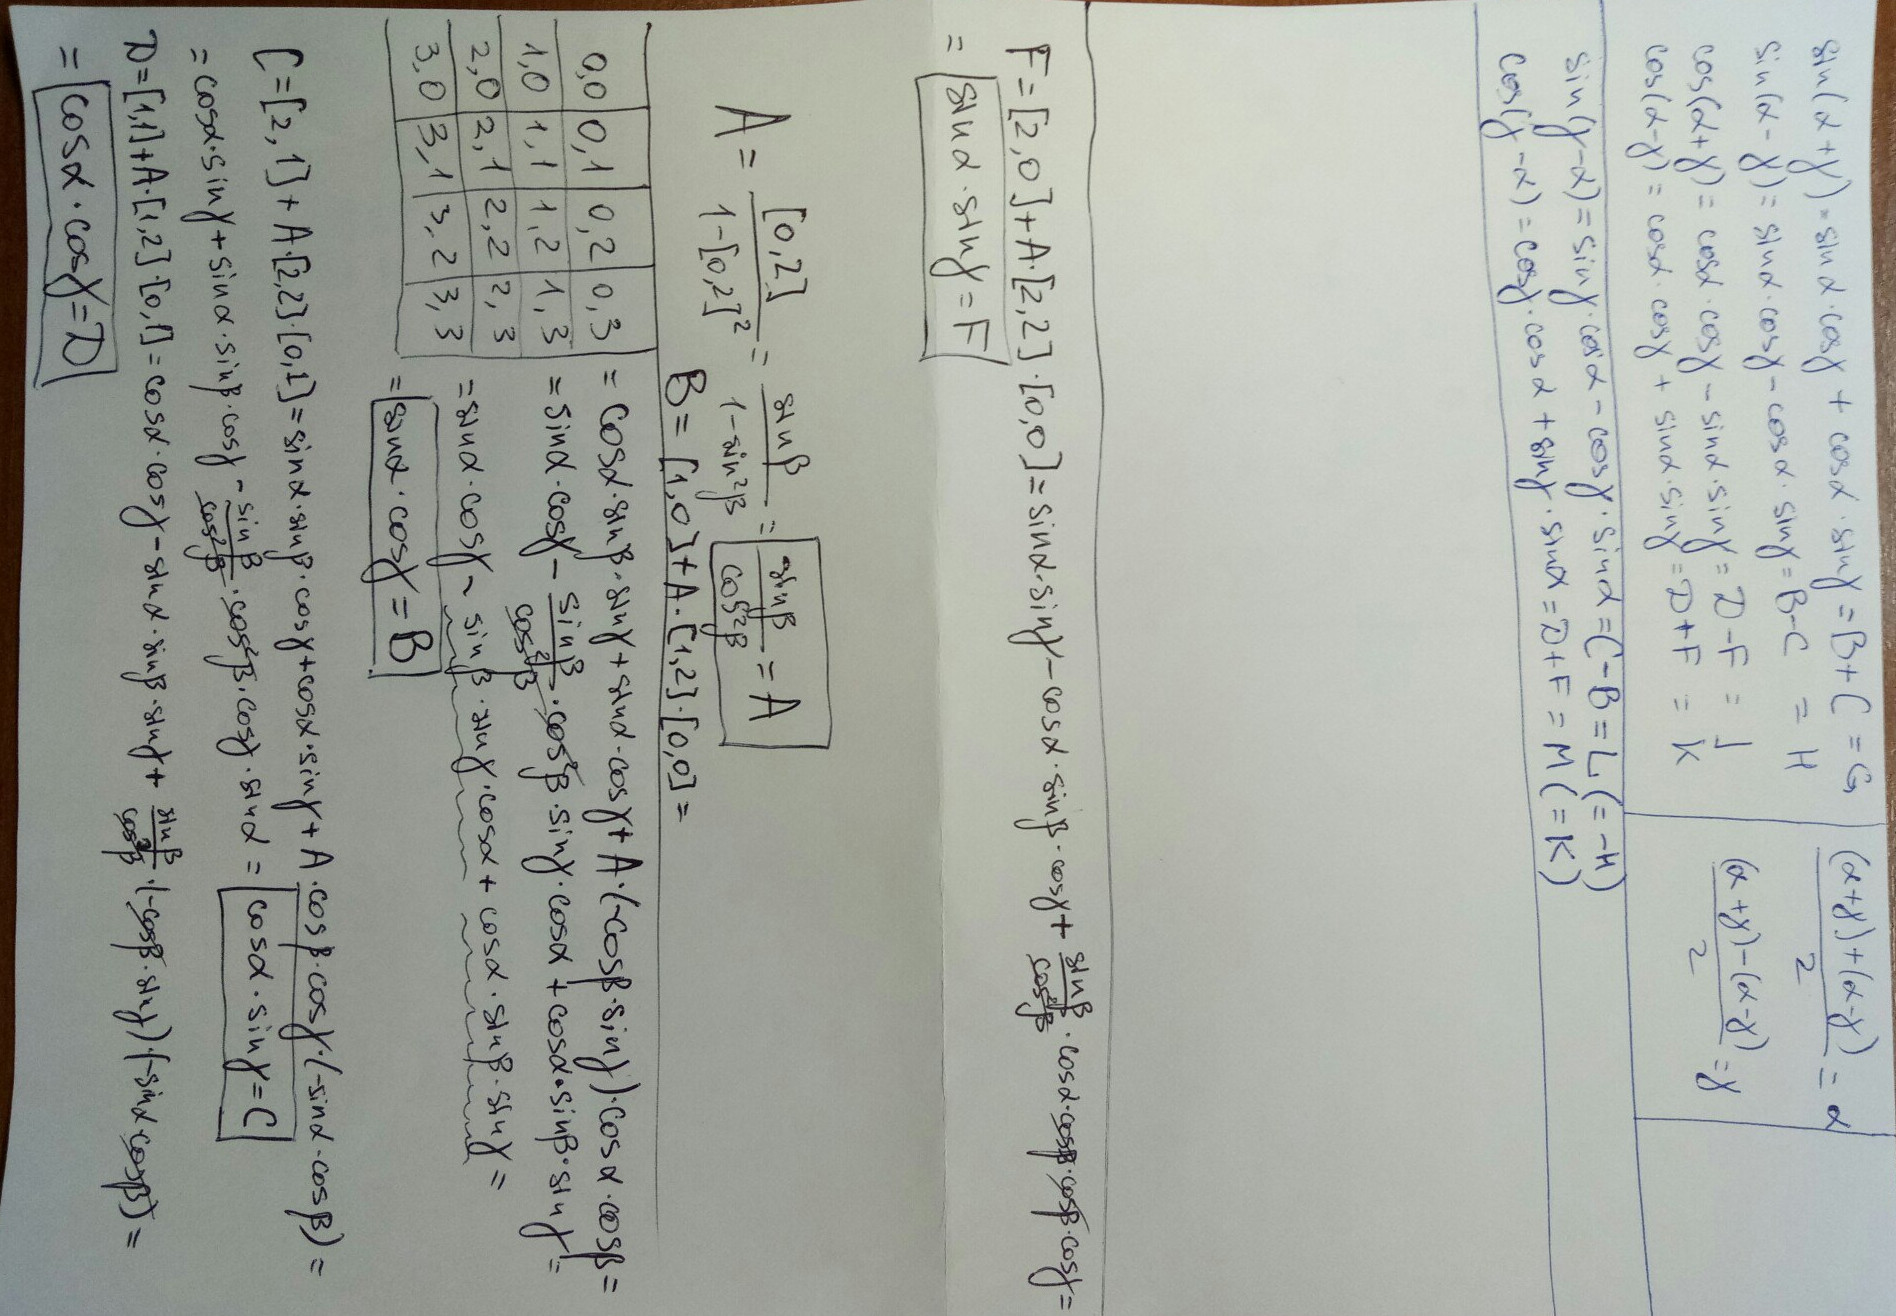 sin(α+γ)=sinα·cosγ + cosα·sinγ = B+C = G
sin(α-γ)= sinα·cosγ - cosα·sinγ = B-C = H
cos(α+γ)= cosα·cosγ - sinα·sinγ = D-F = J
cos(α-γ)= cosα·cosγ + sinα·sinγ = D+F = K
((α+γ)+(α-γ))/2 = α
((α+γ)-(α-γ))/2 = γ
sin(γ-α)= sinγ·cosα - cosγ·sinα = C-B = L (=-H)
cos(γ-α)= cosγ·cosα + sinγ·sinα = D+F = M (=K)
F=[2,0]+A·[2,2]·[0,0]= sinα·sinγ - cosα·sinβ·cosγ + sinβ/cos²β·cosα·cosβ·cosβ·cosγ=
= sinα·sinγ=F
A= [0,2]/(1-[0,2]²) = sinβ/(1-sin²β) = sinβ/cos²β = A
B= [1,0]+A·[1,2]·[0,0]=
0,0 0,1 0,2 0,3
1,0 1,1 1,2 1,3
2,0 2,1 2,2 2,3
3,0 3,1 3,2 3,3
= cosα·sinβ·sinγ+sinα·cosγ+A·(-cosβ·sinγ)·cosα·cosβ=
= sinα·cosγ - sinβ/cos²β·cos²β·sinγ·cosα+cosα·sinβ·sinγ=
= sinα·cosγ - sinβ·sinγ·cosα+cosα·sinβ·sinγ=
= sinα·cosγ=B
C=[2,1]+A·[2,2]·[0,1]=sinα·sinβ·cosγ+cosα·sinγ+A·cosβ·cosγ·(-sinα·cosβ)=
= cosα·sinγ+sinα·sinβ·cosγ - sinβ/cos²β·cos²β·cosγ·sinα= cosα·sinγ=C
D=[1,1]+A·[1,2]·[0,1]=cosα·cosγ-sinα·sinβ·sinγ+ sinβ/cos²β·(-cosβ·sinγ)·(-sinα·cosβ)=
= cosα·cosγ=D